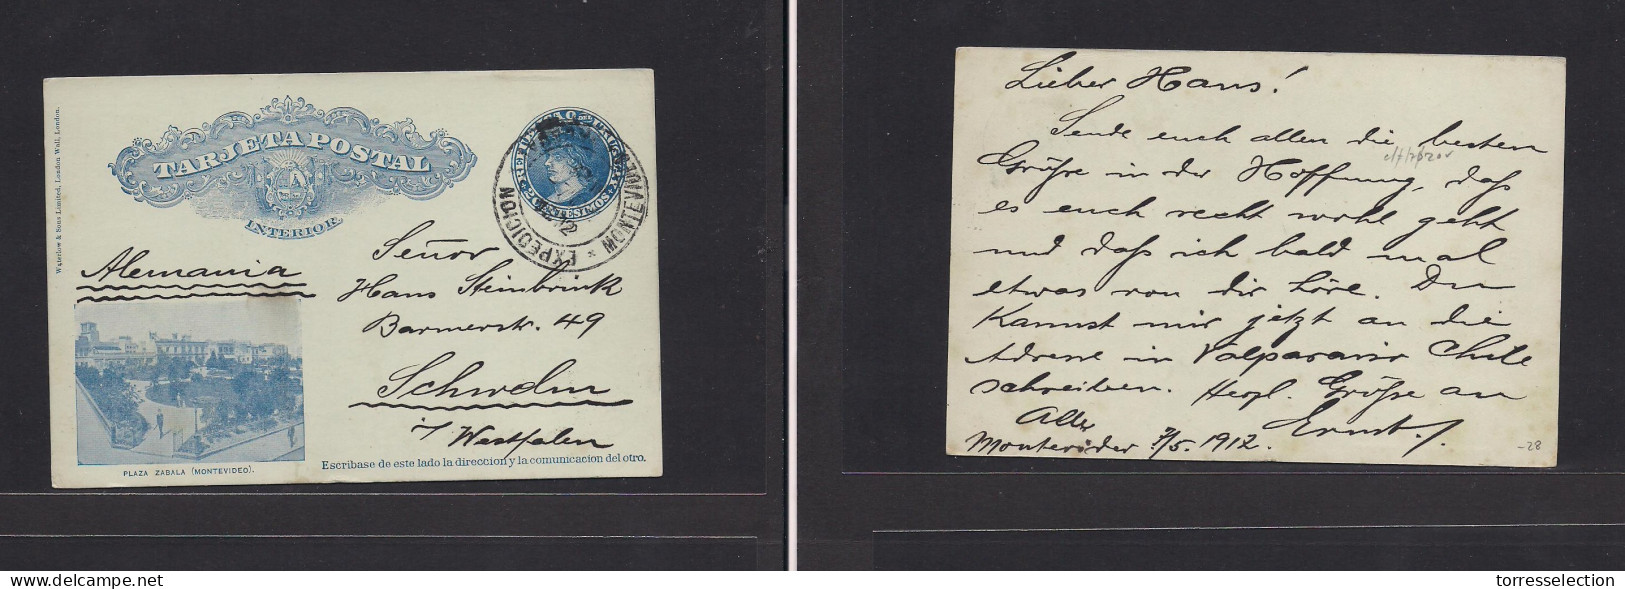 Waterlow & Sons Limited, London Wall, London.
TARJETA POSTAL
INTERIOR
REPUBLICA O. DEL URUGUAY
2 CENTESIMOS
MONTEVIDEO
* EXPEDICION
Alemania
Señor
Hans Steinbrink
Barmerstr. 49
Schwelm
i/ Westfalen
PLAZA ZABALA (MONTEVIDEO).
Escribase de este lado la direccion y la comunicacion del otro.
Lieber Hans!
Sende euch allen die besten
Grüße in der Hoffnung, daß
es euch recht wohl geht
und daß ich bald mal
etwas von dir höre. Du
Kannst mir jetzt an die
Adresse in Valparaiso Chile
schreiben. Herzl. Grüße an
Alle
Ernst.
Montevideo 7/5. 1912.
-28
torresselection